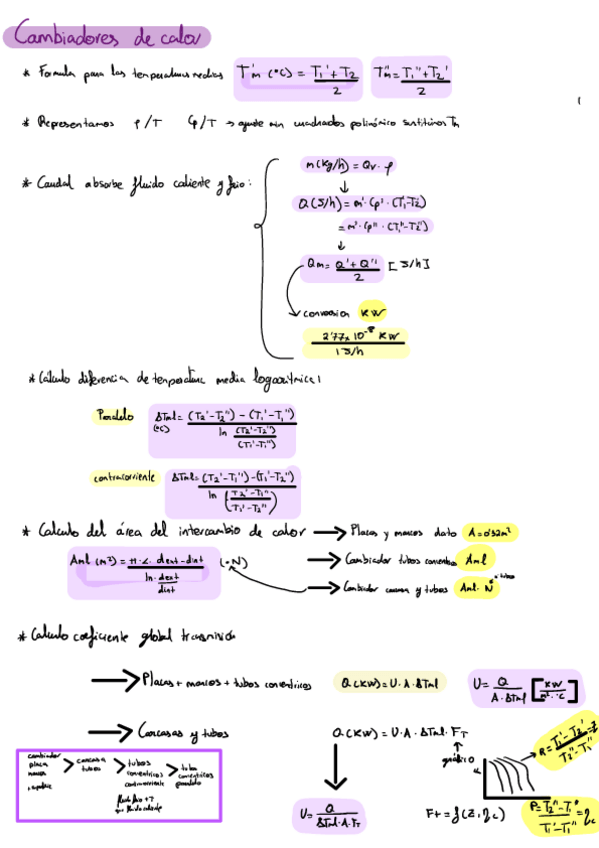 Cambiadores de calor
* Formula para las temperaturas medias T'm (ºC) = T1' + T2' / 2 T''m = T1'' + T2'' / 2
* Representamos ρ/T Cp/T → ajuste min cuadrados polinómico sustituimos Tm
* Caudal absorbe fluido caliente y frio:
m (kg/h) = Qv · ρ
↓
Q (J/h) = m' · Cp' · (T1'-T2')
= m'' · Cp'' · (T1''-T2'')
↓
Qm = Q' + Q'' / 2 [J/h]
conversion KW
2'77x10^-7 KW / 1 J/h
* Cálculo diferencia de temperatura media logarítmica
Paralelo ΔTml = (T2'-T2'') - (T1'-T1'') / ln (T2'-T2'') / (T1'-T1'')
(ºC)
contracorriente ΔTml = (T2'-T1'') - (T1'-T2'') / ln (T2'-T1'' / T1'-T2'')
* Calculo del área del intercambio de calor → Placas y marcos dato A = 0'32m²
Aml (m²) = π·L· dext - dint / ln dext / dint (·N)
→ Cambiador tubos concentricos Aml
→ Cambiador carcasa y tubos Aml · N
nº tubos
* Calculo coeficiente global transmisión
→ Placas + marcos + tubos concentricos Q (KW) = U · A · ΔTml U = Q / A · ΔTml [KW / m² · ºC]
→ Carcasas y tubos Q (KW) = U · A · ΔTml · FT
gráfico
R = T1' - T2' / T2'' - T1'' = Z
U = Q / ΔTml · A · FT
Ft = f(Z, ηc)
P = T2'' - T1'' / T1' - T1'' = ηc
cambiador placa marco > carcasa tubos > tubos concentricos contracorriente > tubos concentricos paralelo